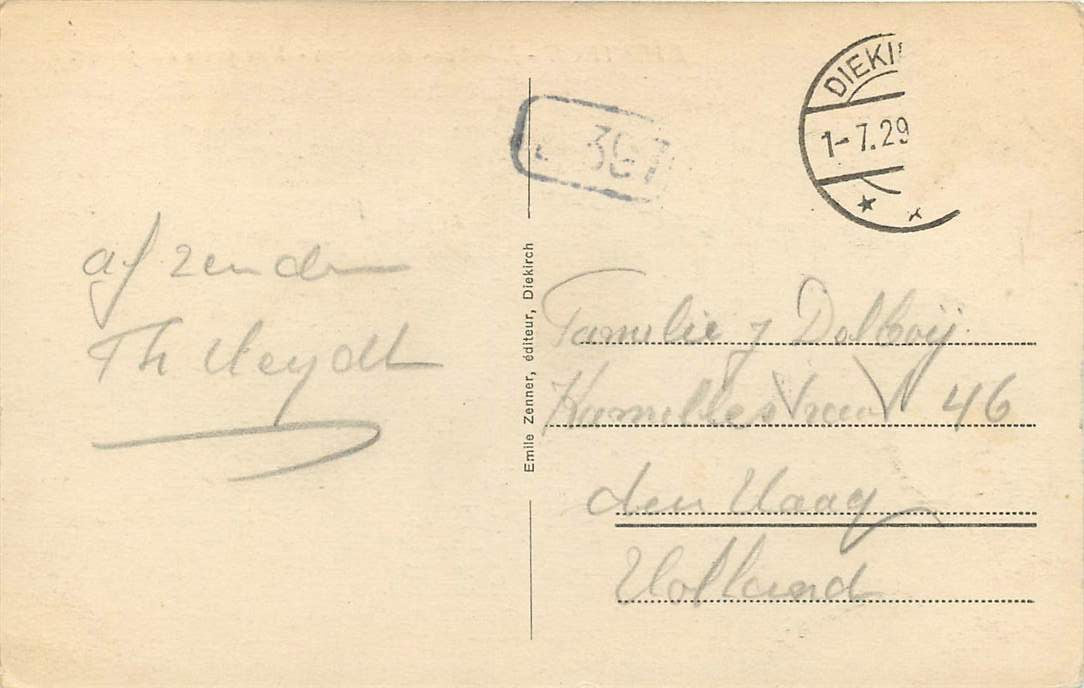 DIEKI
1-7.29
367
afzender
Th Heydt
Emile Zenner, éditeur, Diekirch
Familie J Dolboÿ.
Kamillestraat 46
den Haag
Holland